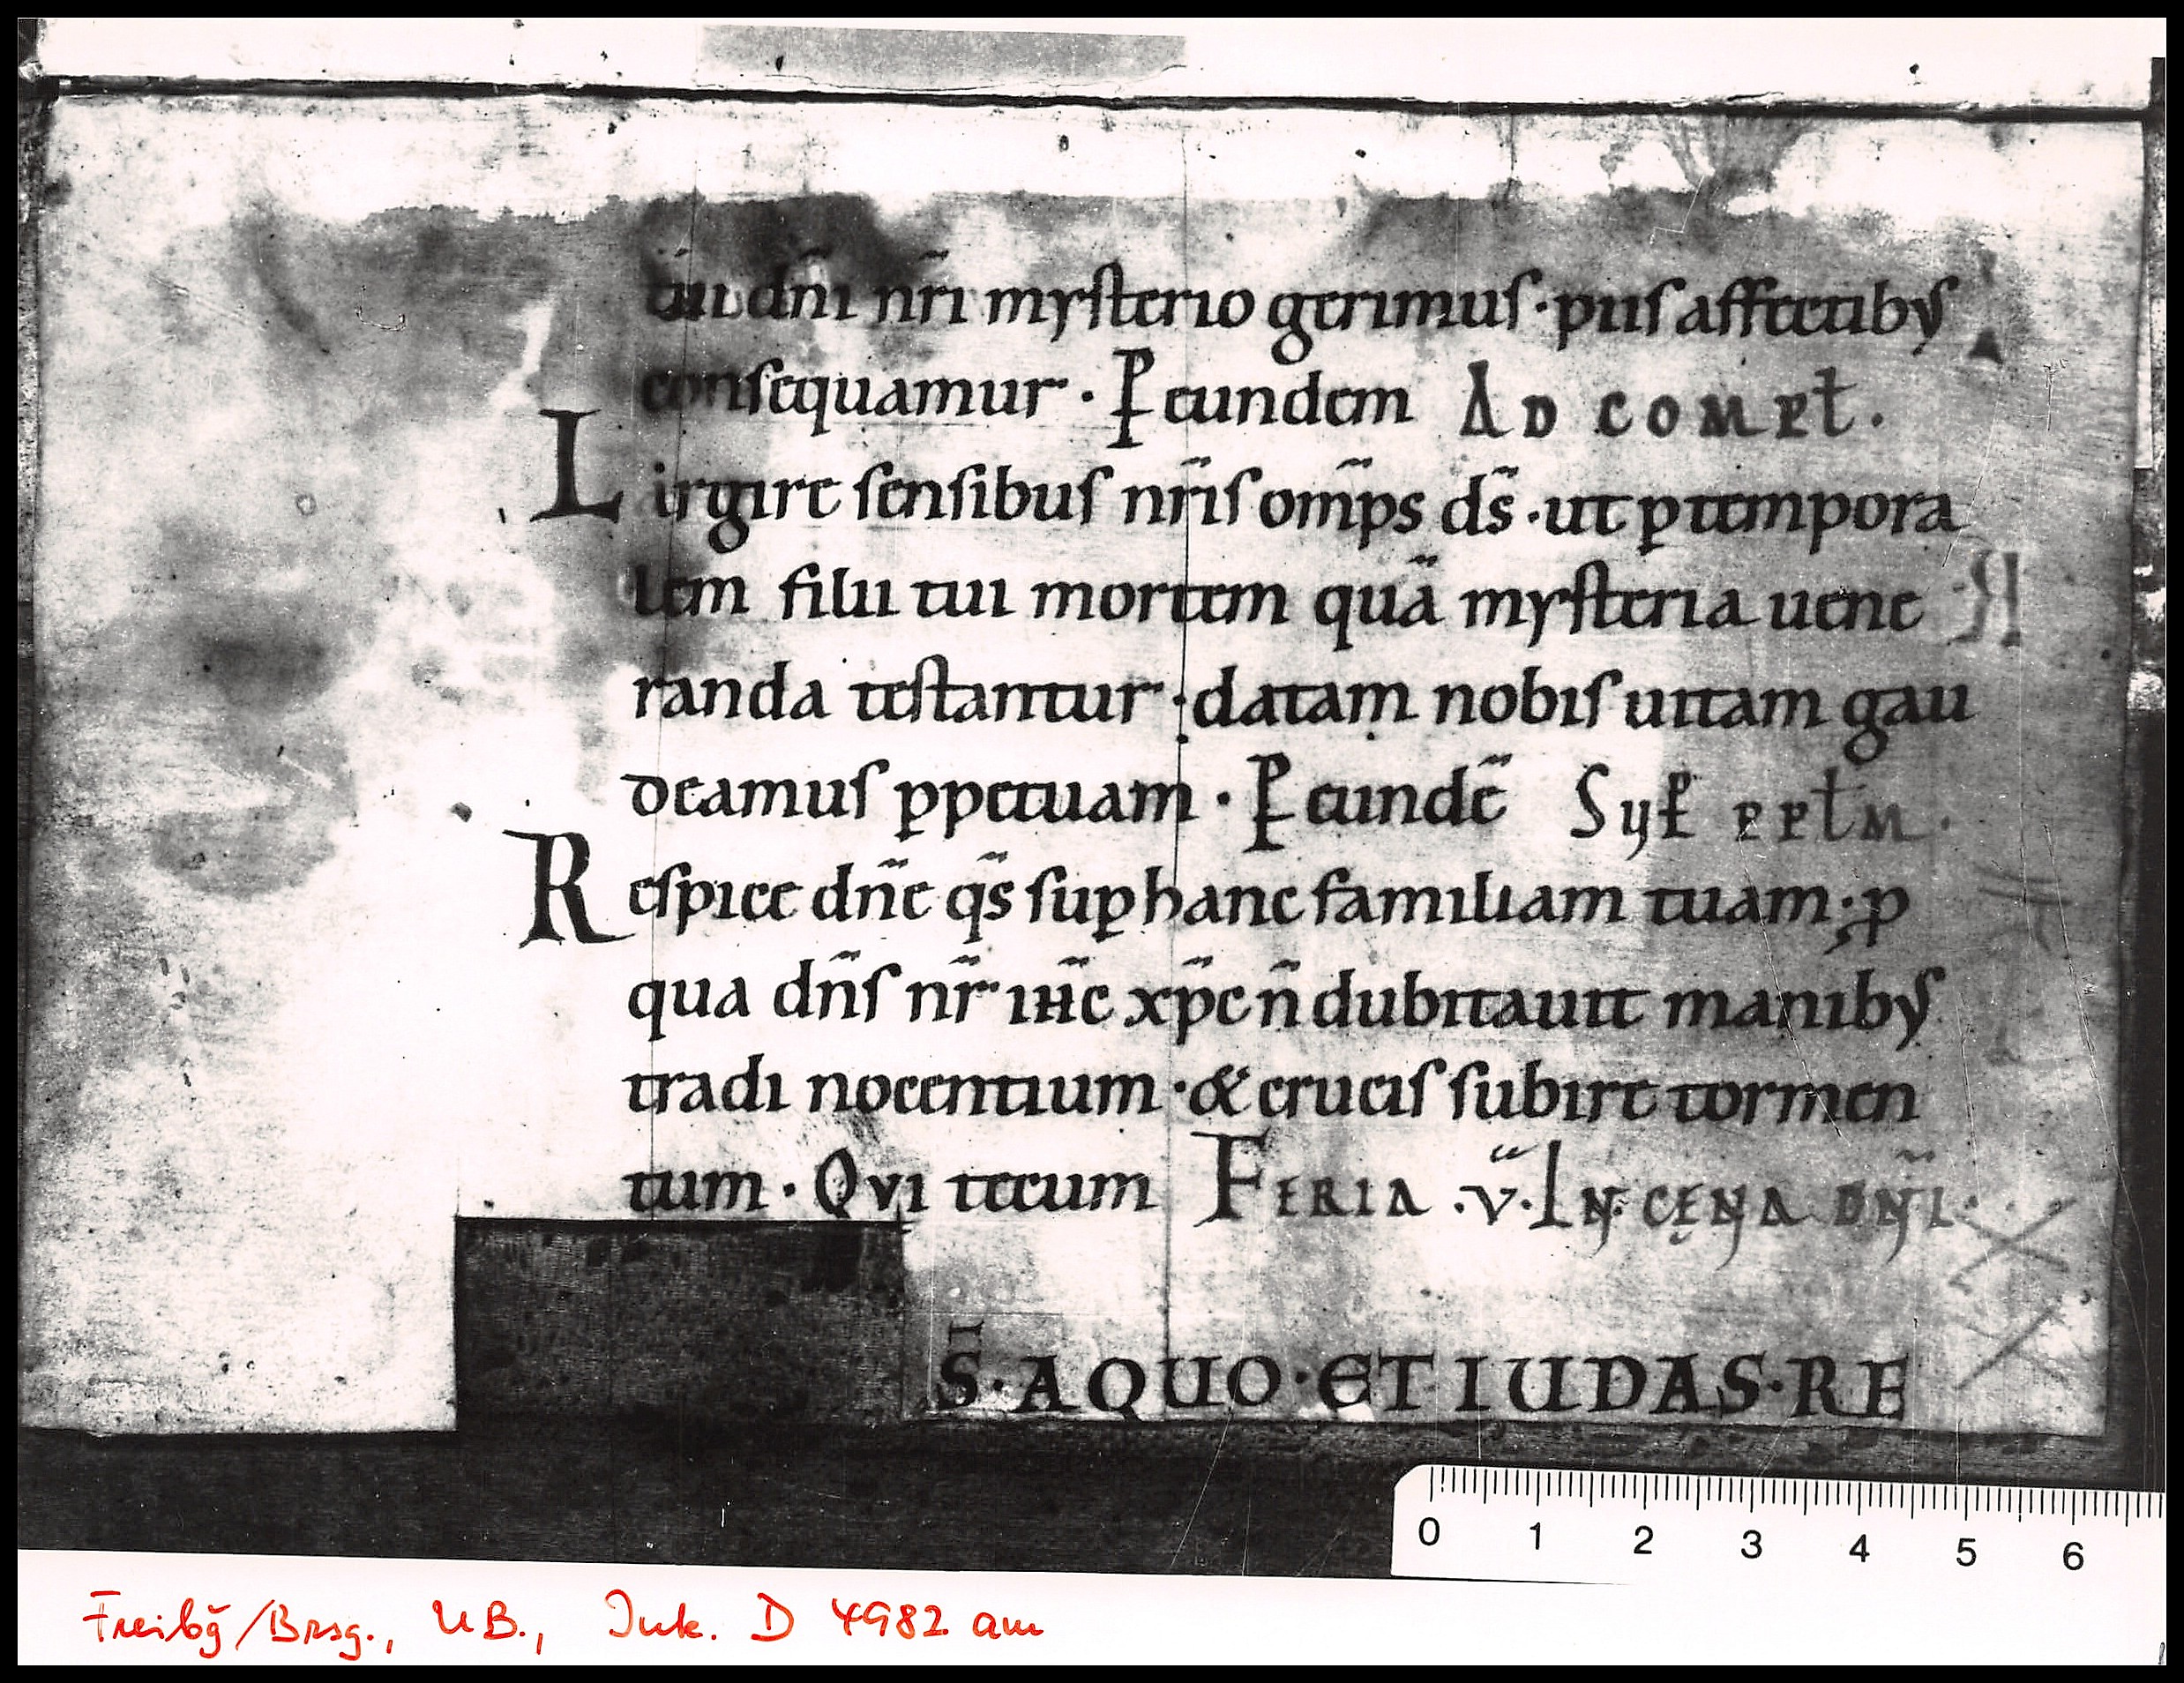 tui dn̄i nr̄i mysterio gerimus · piis affectibꝰ
consequamur · P̱ eundem AD COMPL̄ .
Lirgire sensibus nr̄is om̄ps ds̄ · ut ꝑ tempora
lem filii tui mortem quā mysteria uene
randa testantur · datam nobis uitam gau
deamus ꝑpetuam · P̱ eundē Sup̱ PPL̄M .
Respice dn̄e qs̄ suꝑ hanc familiam tuam · ꝓ
qua dn̄s nr̄ ih̄c xp̄c n̄ dubitauit manibꝰ
tradi nocentium · & crucis subire tormen
tum · Qvi tecum FERIA · V · IN CĘNA DN̄I ·
S̄ · A QUO · ET IUDAS · RE
0 1 2 3 4 5 6
Freibg/Brsg., UB., Ink. D 4982 am